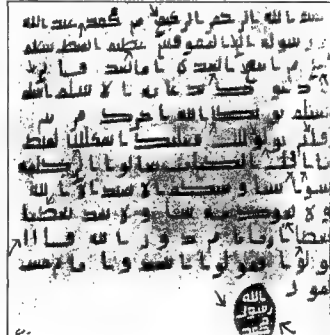 بسم الله الرحمن الرحيم من محمد عبد الله
ورسوله الى المقوقس عظيم القبط سلام
على من اتبع الهدى اما بعد فانى
ادعوك بدعاية الاسلام اسلم
تسلم يوتك الله اجرك مرتين
فان توليت فعليك القبط
يا اهل الكتاب تعالوا الى كلمة
سوا بيننا وبينكم الا نعبد الا الله
ولا نشرك به شيا ولا يتخذ بعضنا
بعضا اربابا من دون الله فان
تولوا فقولوا اشهدوا بانا مسل
مون
الله
رسول
محمد